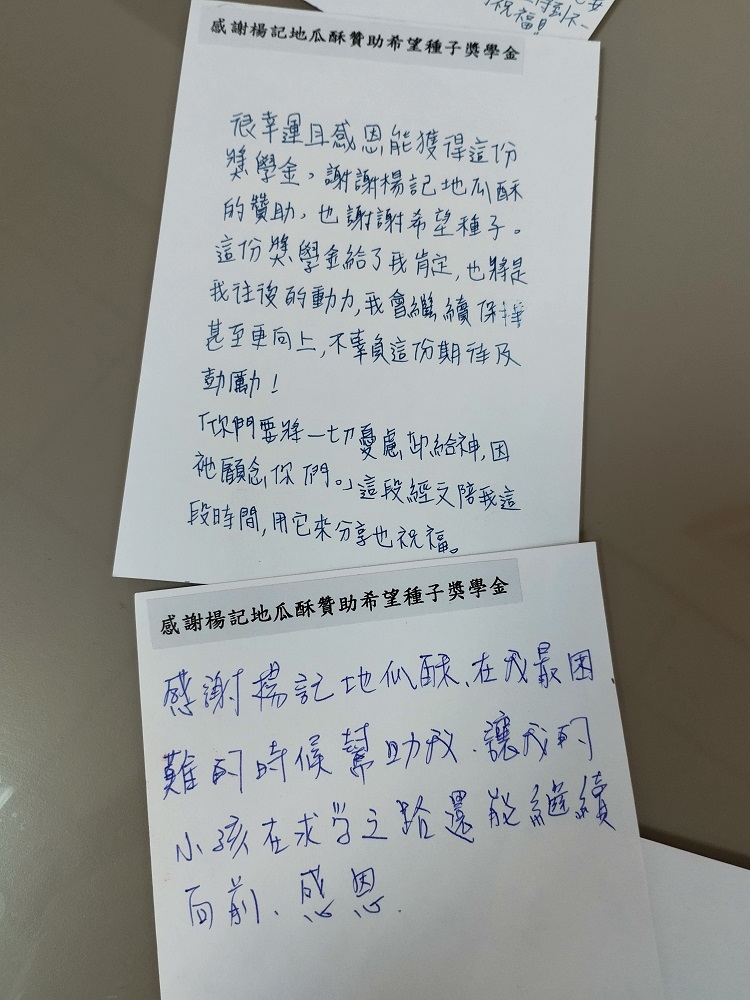 祝福!
感謝楊記地瓜酥贊助希望種子獎學金
很幸運且感恩能獲得這份
獎學金。謝謝楊記地瓜酥
的贊助,也謝謝希望種子。
這份獎學金給了我肯定,也將是
我往後的動力,我會繼續保持
甚至更向上,不辜負這份期待及
鼓勵!
「你們要將一切憂慮卸給神,因
祂顧念你們。」這段經文陪我這
段時間,用它來分享也祝福。
感謝楊記地瓜酥贊助希望種子獎學金
感謝楊記地瓜酥、在我最困
難的時候幫助我、讓我的
小孩在求学之路還能繼續
向前、感恩.